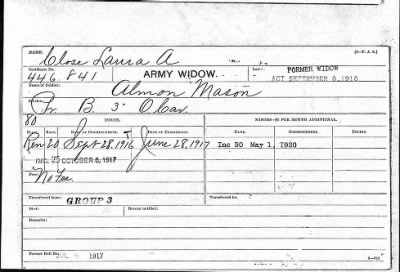 NAME:
Close Laura A
Certificate No. Law: FORMER WIDOW
446.841 ARMY WIDOW. ACT SEPTEMBER 8, 1916
Name of Soldier: Almon Mason
Service: Pr. B 3" O. Cav.
80 ISSUE.
Class. Rate. DATE OF COMMENCEMENT. DATE OF CESSATION. RATE. COMMENCEMENT.
Ren 20 Sept 28, 1916 June 28, 1917 Inc 30 May 1, 1920
INC. 25 OCTOBER 6, 1917
Fees:
No Fee.
Transferred from: GROUP 3 Transferred to:
Died: Bureau notified:
Remarks:
Former Roll No. 1917